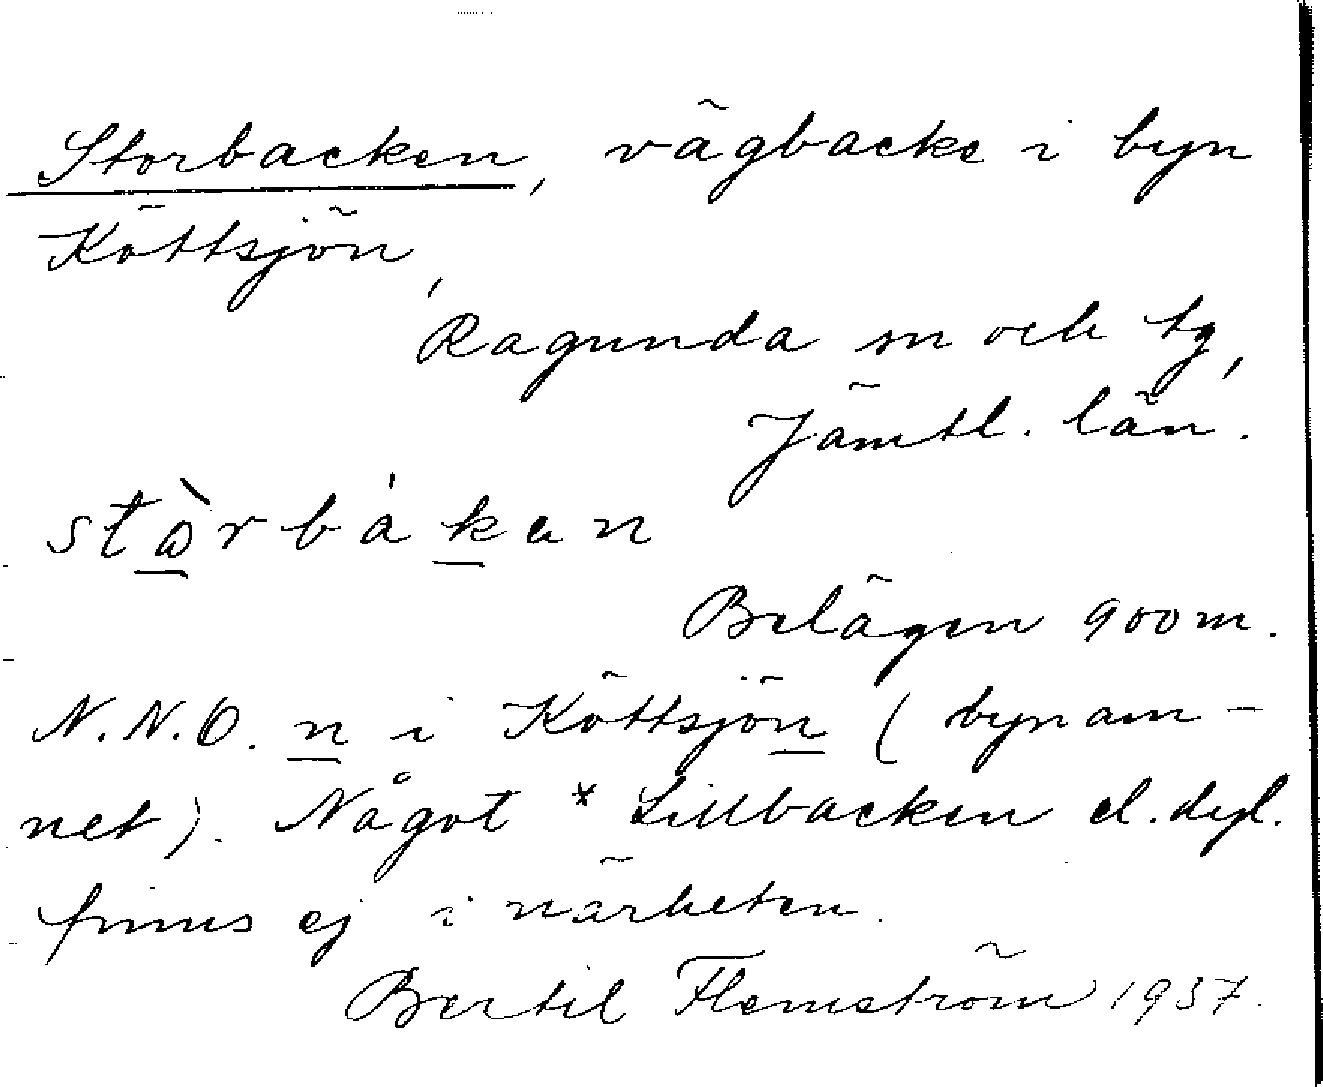 Storbacken, vägbacke i byn
Köttsjön,
Ragunda sn och tg,
Jämtl. län.
stòrbákan
Belägen 900 m.
N.N.O. n i Köttsjön (bynam-
net). Något * Lillbacken el. dyl.
finns ej i närheten.
Bertil Flemström 1937.